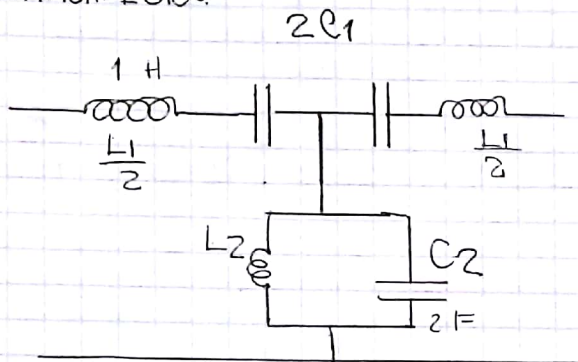 2C1
1 H
L1/2
L1/2
L2
C2
2F